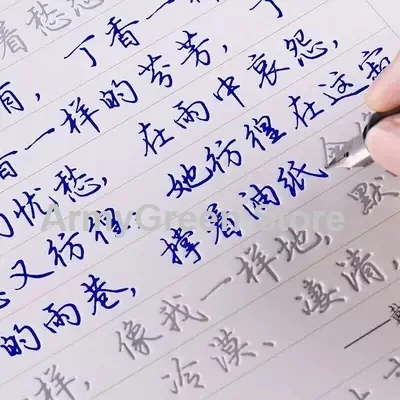 着愁
，丁香一
香一样的芬芳，丁
忧愁，在雨中哀怨，
又彷徨；她彷徨在这寂
的雨巷，撑着油纸
样，像我一样地，默
冷漠、凄清，
ArmyGreen Store